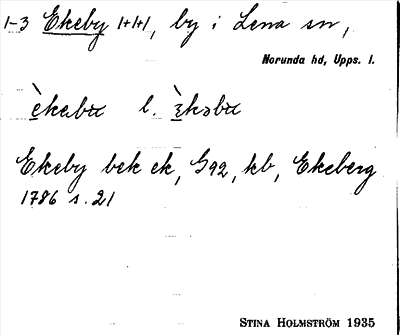 1-3 Ekeby 1+1+1, by i Lena sn,
Norunda hd, Upps. l.
l.
Ekeby bek ek, G92, kb, Ekeberg
1786 s. 21
STINA HOLMSTRÖM 1935